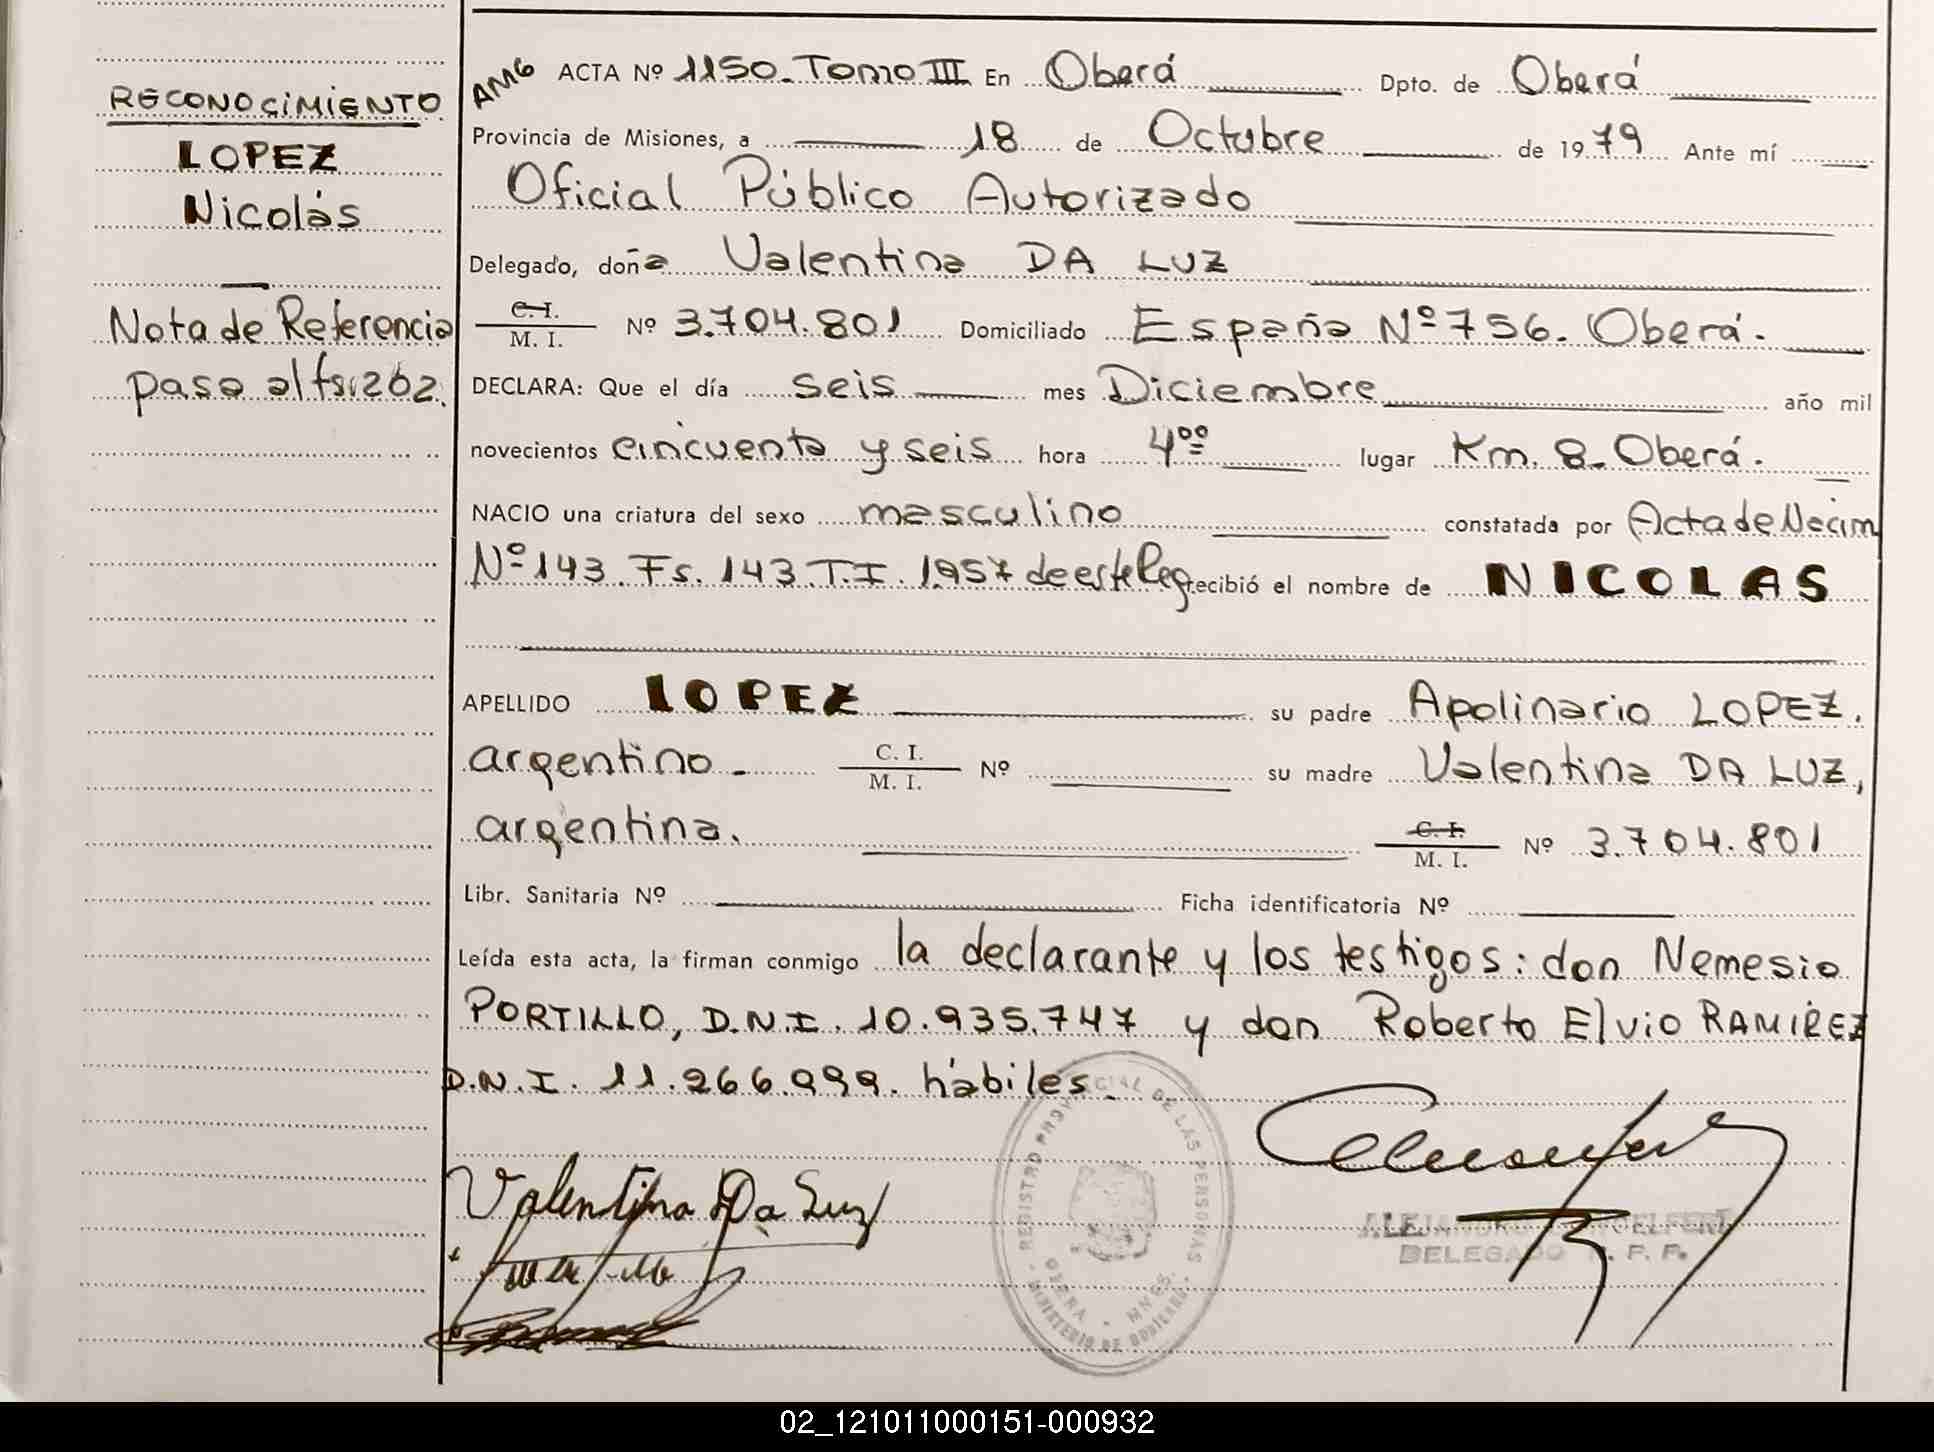 RECONOCIMIENTO
LOPEZ
Nicolás
Nota de Referencia
pasa al fs. 262.
AMG ACTA Nº 1150 - Tomo III En Oberá Dpto. de Oberá
Provincia de Misiones, a 18 de Octubre de 1979 Ante mí
Oficial Público Autorizado
Delegado, doña Valentina DA LUZ
C. I.
M. I. Nº 3.704.801 Domiciliado España Nº 756. Oberá.
DECLARA: Que el día seis mes Diciembre año mil
novecientos cincuenta y seis hora 4 00 lugar Km. 8 - Oberá.
NACIO una criatura del sexo masculino constatada por Acta de Nacim
Nº 143 Fs. 143 T. I. 1957 de este Reg recibió el nombre de NICOLAS
APELLIDO LOPEZ su padre Apolinario LOPEZ.
argentino - C. I.
M. I. Nº su madre Valentina DA LUZ,
argentina. C. I.
M. I. Nº 3.704.801
Libr. Sanitaria Nº Ficha identificatoria Nº
Leída esta acta, la firman conmigo la declarante y los testigos: don Nemesio
PORTILLO, D.N.I. 10.935.747 y don Roberto Elvio RAMIREZ
D.N.I. 11.266.999. hábiles.
Valentina Da Luz
REGISTRO PROVINCIAL DE LAS PERSONAS
OBERA - MNES.
MINISTERIO DE GOBIERNO
DELEGADO R. P. P.
02_121011000151-000932